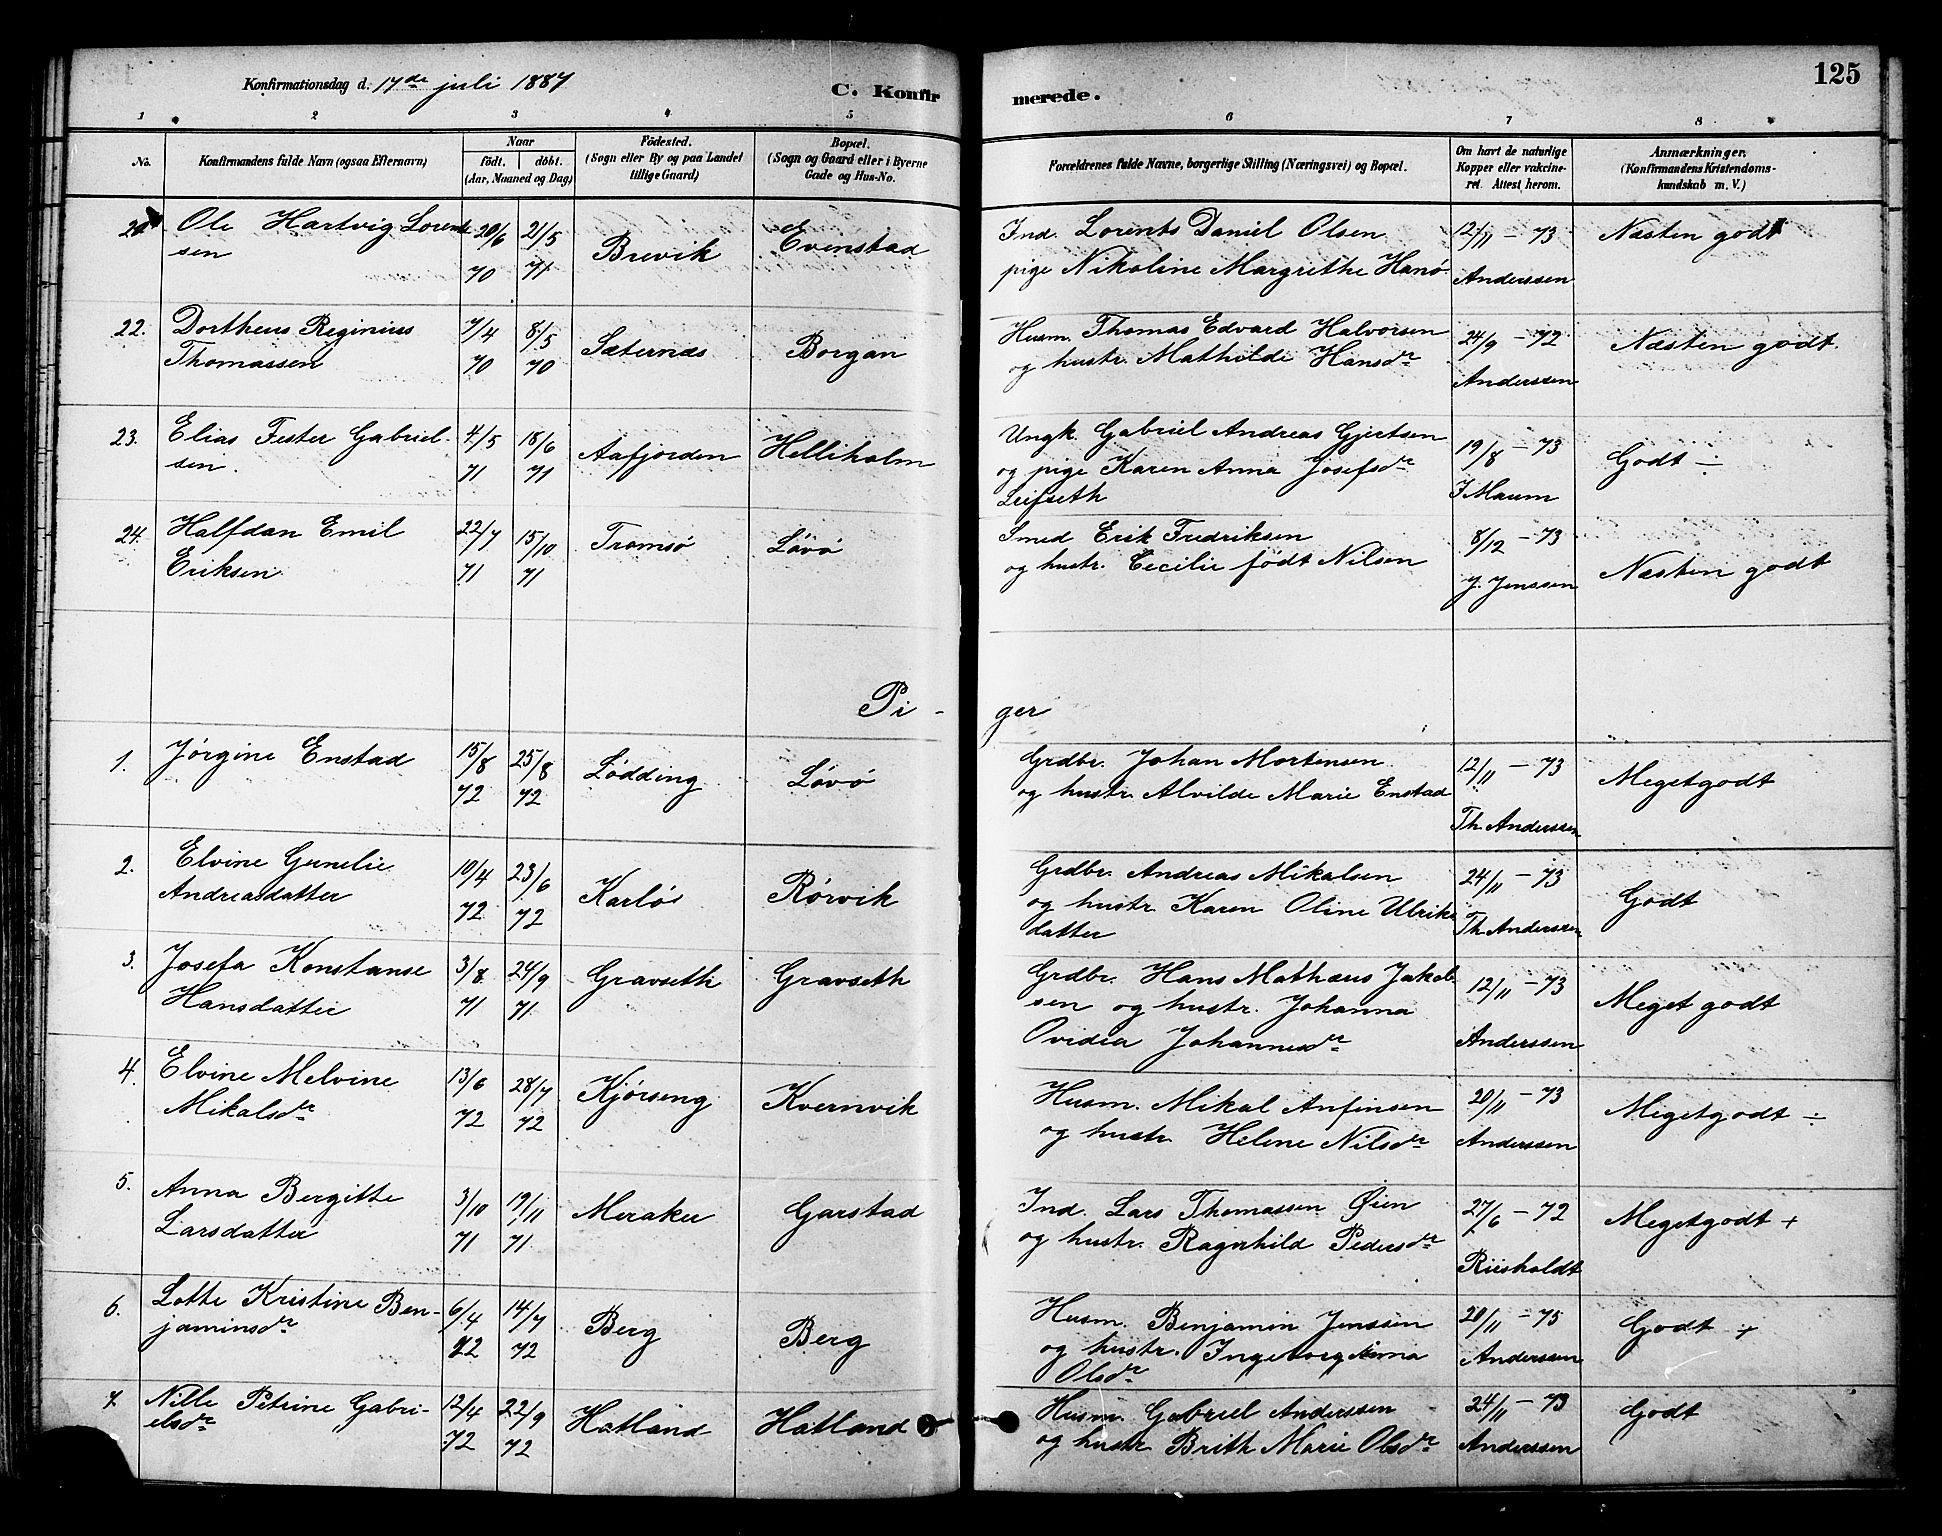 Konfirmationsdag d. 17de juli 1887
C. Konfir
merede.
125
1 2 3 4 5 6 7 8
No.
Konfirmandens fulde Navn (ogsaa Efternavn)
Naar
født. døbt.
(Aar, Maaned og Dag)
Födested.
(Sogn eller By og paa Landet
tillige Gaard)
Bopæl.
(Sogn og Gaard eller i Byerne
Gade og Hus-No.
Forældrenes fulde Navne, borgerlige Stilling (Næringsvei) og Bopæl.
Om havt de naturlige
Kopper eller vakcine-
ret. Attest herom.
Anmærkninger.
(Konfirmandens Kristendoms-
kundskab m. V.)
Ole Hartvig Lorent 20/6 21/5 Brevik Evenstad Ind. Lorents Daniel Olsen 12/11 - 73 Næsten godt
sen 70 71 pige Nikoline Margrethe Hanø. Anderssen
22. Dortheus Reginius 7/4 8/5 Sæternæs Borgan Husm. Thomas Edvard Halvorsen 24/9 - 72 Næsten godt.
Thomassen 70 70 og hustr. Mathilde Hansdr Anderssen
23. Elias Fester Gabriel- 4/5 18/6 Aafjorden Helliholm Ungk. Gabriel Andreas Gjertsen 19/8 - 73 Godt ÷
sen. 71 71 og pige Karen Anna Josefsdr
Leifseth
24. Halfdan Emil 22/7 15/10 Tromsø Løvø Smed Erik Fredriksen 8/12 - 73 Næsten godt
Eriksen 71 71 og hustr. Cecilie født Nilsen J. Jenssen
Pi- ger
1. Jørgine Enstad 15/8 25/8 Lødding Løvø Grdbr. Johan Mortensen 12/11 - 73 Megetgodt
72 72 og hustr. Alvilde Marie Enstad Th. Anderssen
2. Elvine Gunelie 10/4 23/6 Karløs Rørvik Grdbr. Andreas Mikalsen 24/11 - 73 Godt
Andreasdatter 72 72 og hustr. Karen Oline Ulriks Th. Anderssen
datter
3. Josefa Konstanse 3/8 24/9 Gravseth Gravseth Grdbr. Hans Mathæus Jakob 12/11 - 73 Meget godt
Hansdatter 71 71 sen og hustr. Johanna
Ovidia Johannesdr Anderssen
4. Elvine Melvine 13/6 28/7 Kjørseng Kvernvik Husm. Mikal Anfinsen 20/11 - 73 Megetgodt ÷
Mikalsdr 72 72 og hustr. Helene Nilsdr Anderssen
5. Anna Bergitte 3/10 19/11 Meraker Garstad Ind. Lars Thomassen Øien 27/6 - 72 Megetgodt +
Larsdatter 71 71 og hustr. Ragnhild Pedersdr Riisholdt
6. Lotte Kristine Ben- 6/4 14/7 Berg Berg Husm. Benjamin Jenssen 20/11 - 75 Godt +
jaminsdr 72 72 og hustr. Ingeborg Anna Anderssen
Olsdr
7. Nille Petrine Gabri- 12/4 22/9 Hatland Hatland Husm. Gabriel Anderssen 24/11 - 73 Godt
elsdr 72 72 og hustr Brith Marie Olsdr Anderssen